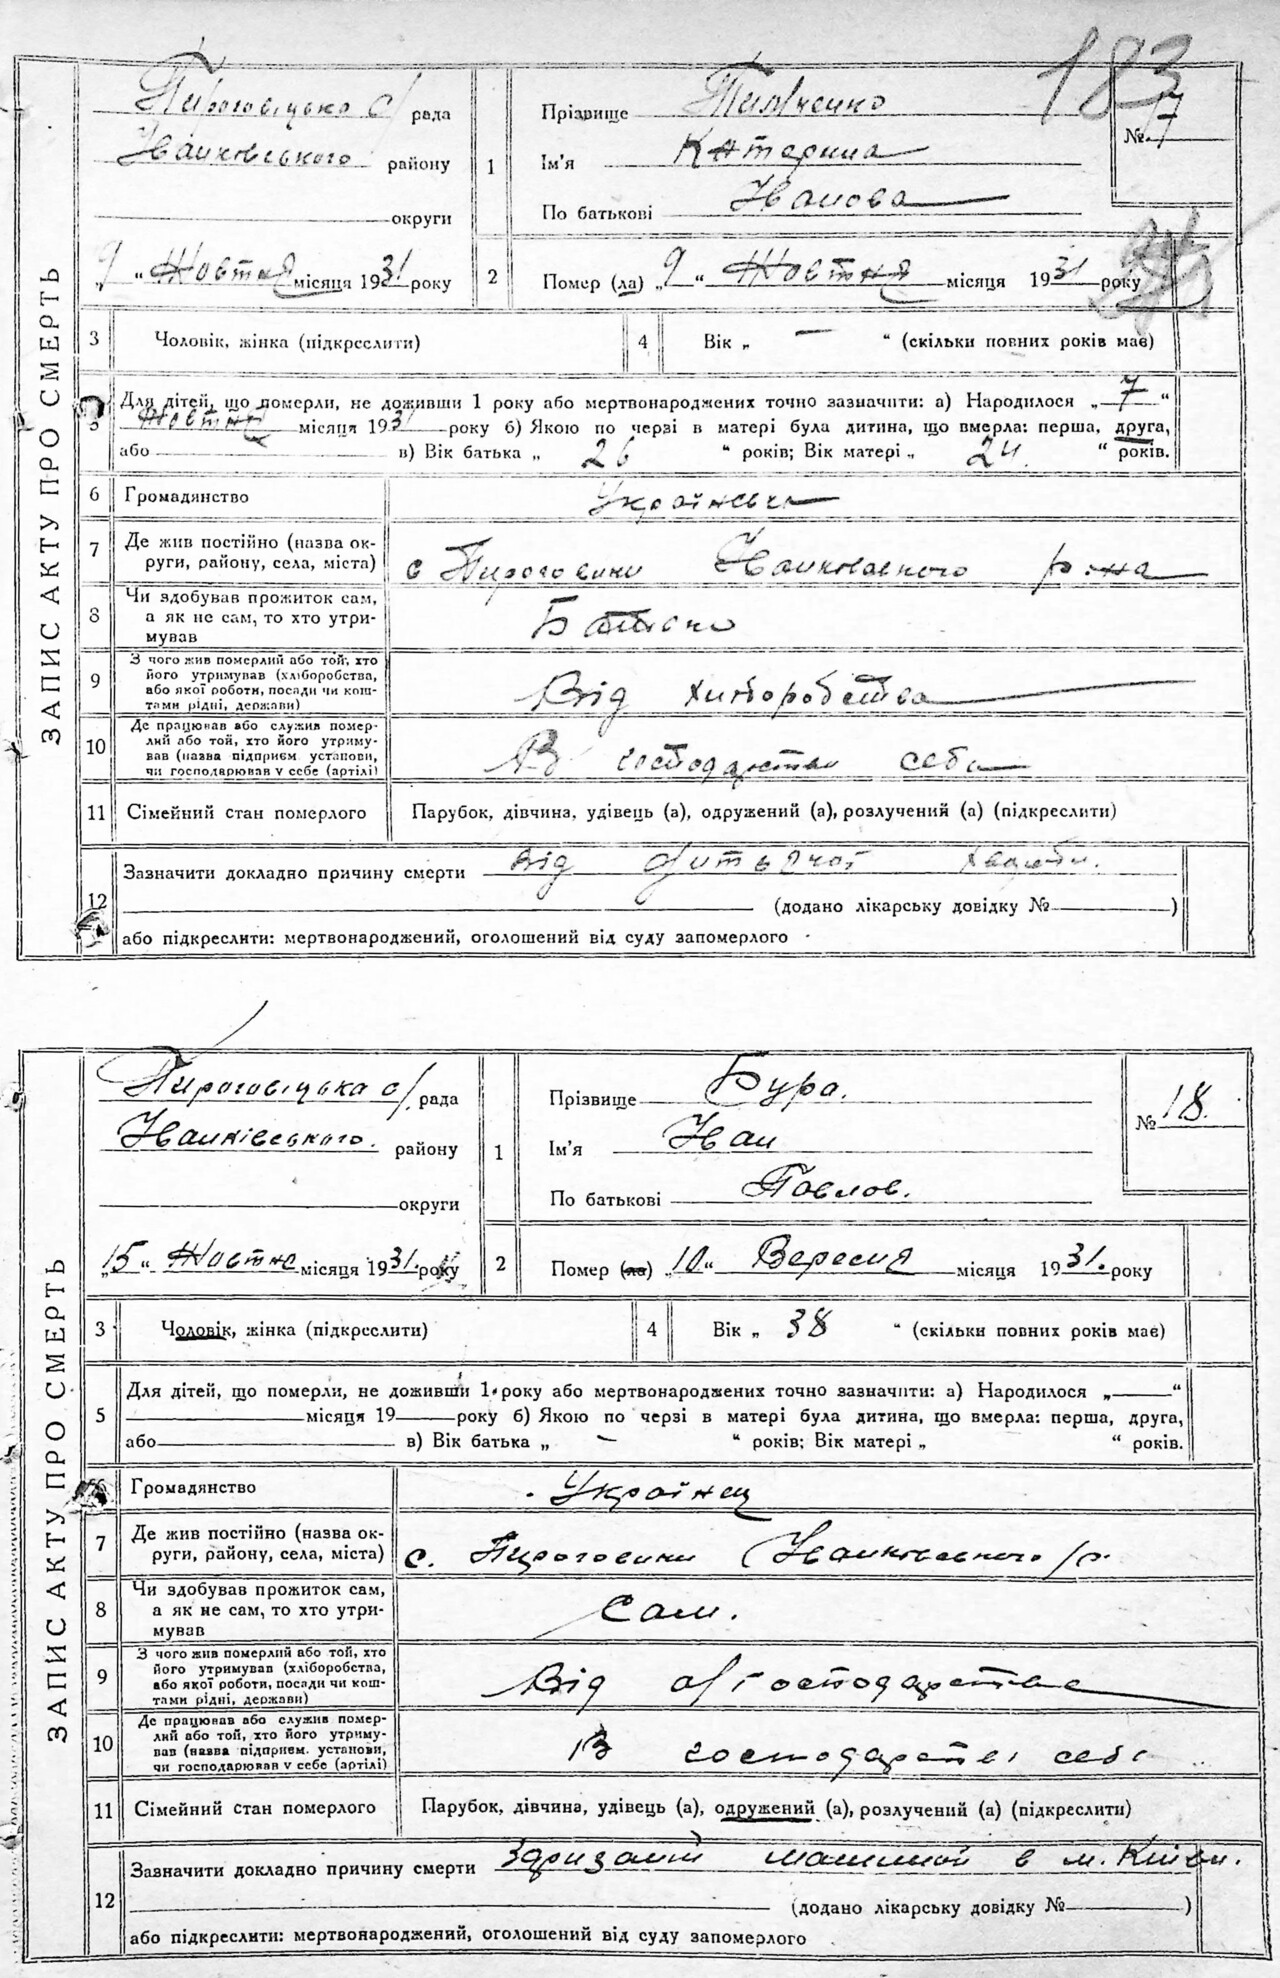 183
ЗАПИС АКТУ ПРО СМЕРТЬ
Пироговіцько с/ рада
Іванківського району
округи
„9“ Жовтня місяця 1931 року
1
Прізвище Тимченко
Ім'я Катерина
По батькові Іванова
№ 17
2
Помер (ла) „9“ Жовтня місяця 1931 року
3
Чоловік, жінка (підкреслити)
4
Вік „ — “ (скільки повних років має)
5
Для дітей, що померли, не доживши 1 року або мертвонароджених точно зазначити: а) Народилося „7“
Жовтня місяця 1931 року б) Якою по черзі в матері була дитина, що вмерла: перша, друга,
або в) Вік батька „ 26 “ років; Вік матері „ 24 “ років.
6
Громадянство Українська
7
Де жив постійно (назва ок-
руги, району, села, міста)
с Пироговичи Іванківського р-на
8
Чи здобував прожиток сам,
а як не сам, то хто утри-
мував
Батько
9
З чого жив померлий або той, хто
його утримував (хліборобства,
або якої роботи, посади чи кош-
тами рідні, держави)
Від хліборобства
10
Де працював або служив помер-
лий або той, хто його утриму-
вав (назва підприєм. установи,
чи господарював у себе (артілі)
В господарстві себе
11
Сімейний стан померлого
Парубок, дівчина, удівець (а), одружений (а), розлучений (а) (підкреслити)
12
Зазначити докладно причину смерти Від дитячої хвороби.
(додано лікарську довідку № )
або підкреслити: мертвонароджений, оголошений від суду запомерлого
ЗАПИС АКТУ ПРО СМЕРТЬ
Пироговіцька с/ рада
Іванківського району
округи
„15“ Жовтня місяця 1931. року
1
Прізвище Бура.
Ім'я Іван
По батькові Павлов.
№ 18.
2
Помер (ла) „10“ Вересня місяця 1931. року
3
Чоловік, жінка (підкреслити)
4
Вік „ 38 “ (скільки повних років має)
5
Для дітей, що померли, не доживши 1 року або мертвонароджених точно зазначити: а) Народилося „ “
місяця 19 року б) Якою по черзі в матері була дитина, що вмерла: перша, друга,
або в) Вік батька „ — “ років; Вік матері „ “ років.
6
Громадянство Українец
7
Де жив постійно (назва ок-
руги, району, села, міста)
с. Пироговичи Іванківського р.
8
Чи здобував прожиток сам,
а як не сам, то хто утри-
мував
Сам.
9
З чого жив померлий або той, хто
його утримував (хліборобства,
або якої роботи, посади чи кош-
тами рідні, держави)
Від с/господарства
10
Де працював або служив помер-
лий або той, хто його утриму-
вав (назва підприєм. установи,
чи господарював у себе (артілі)
В господарстві себе
11
Сімейний стан померлого
Парубок, дівчина, удівець (а), одружений (а), розлучений (а) (підкреслити)
12
Зазначити докладно причину смерти машиной в м. Київи.
(додано лікарську довідку № )
або підкреслити: мертвонароджений, оголошений від суду запомерлого